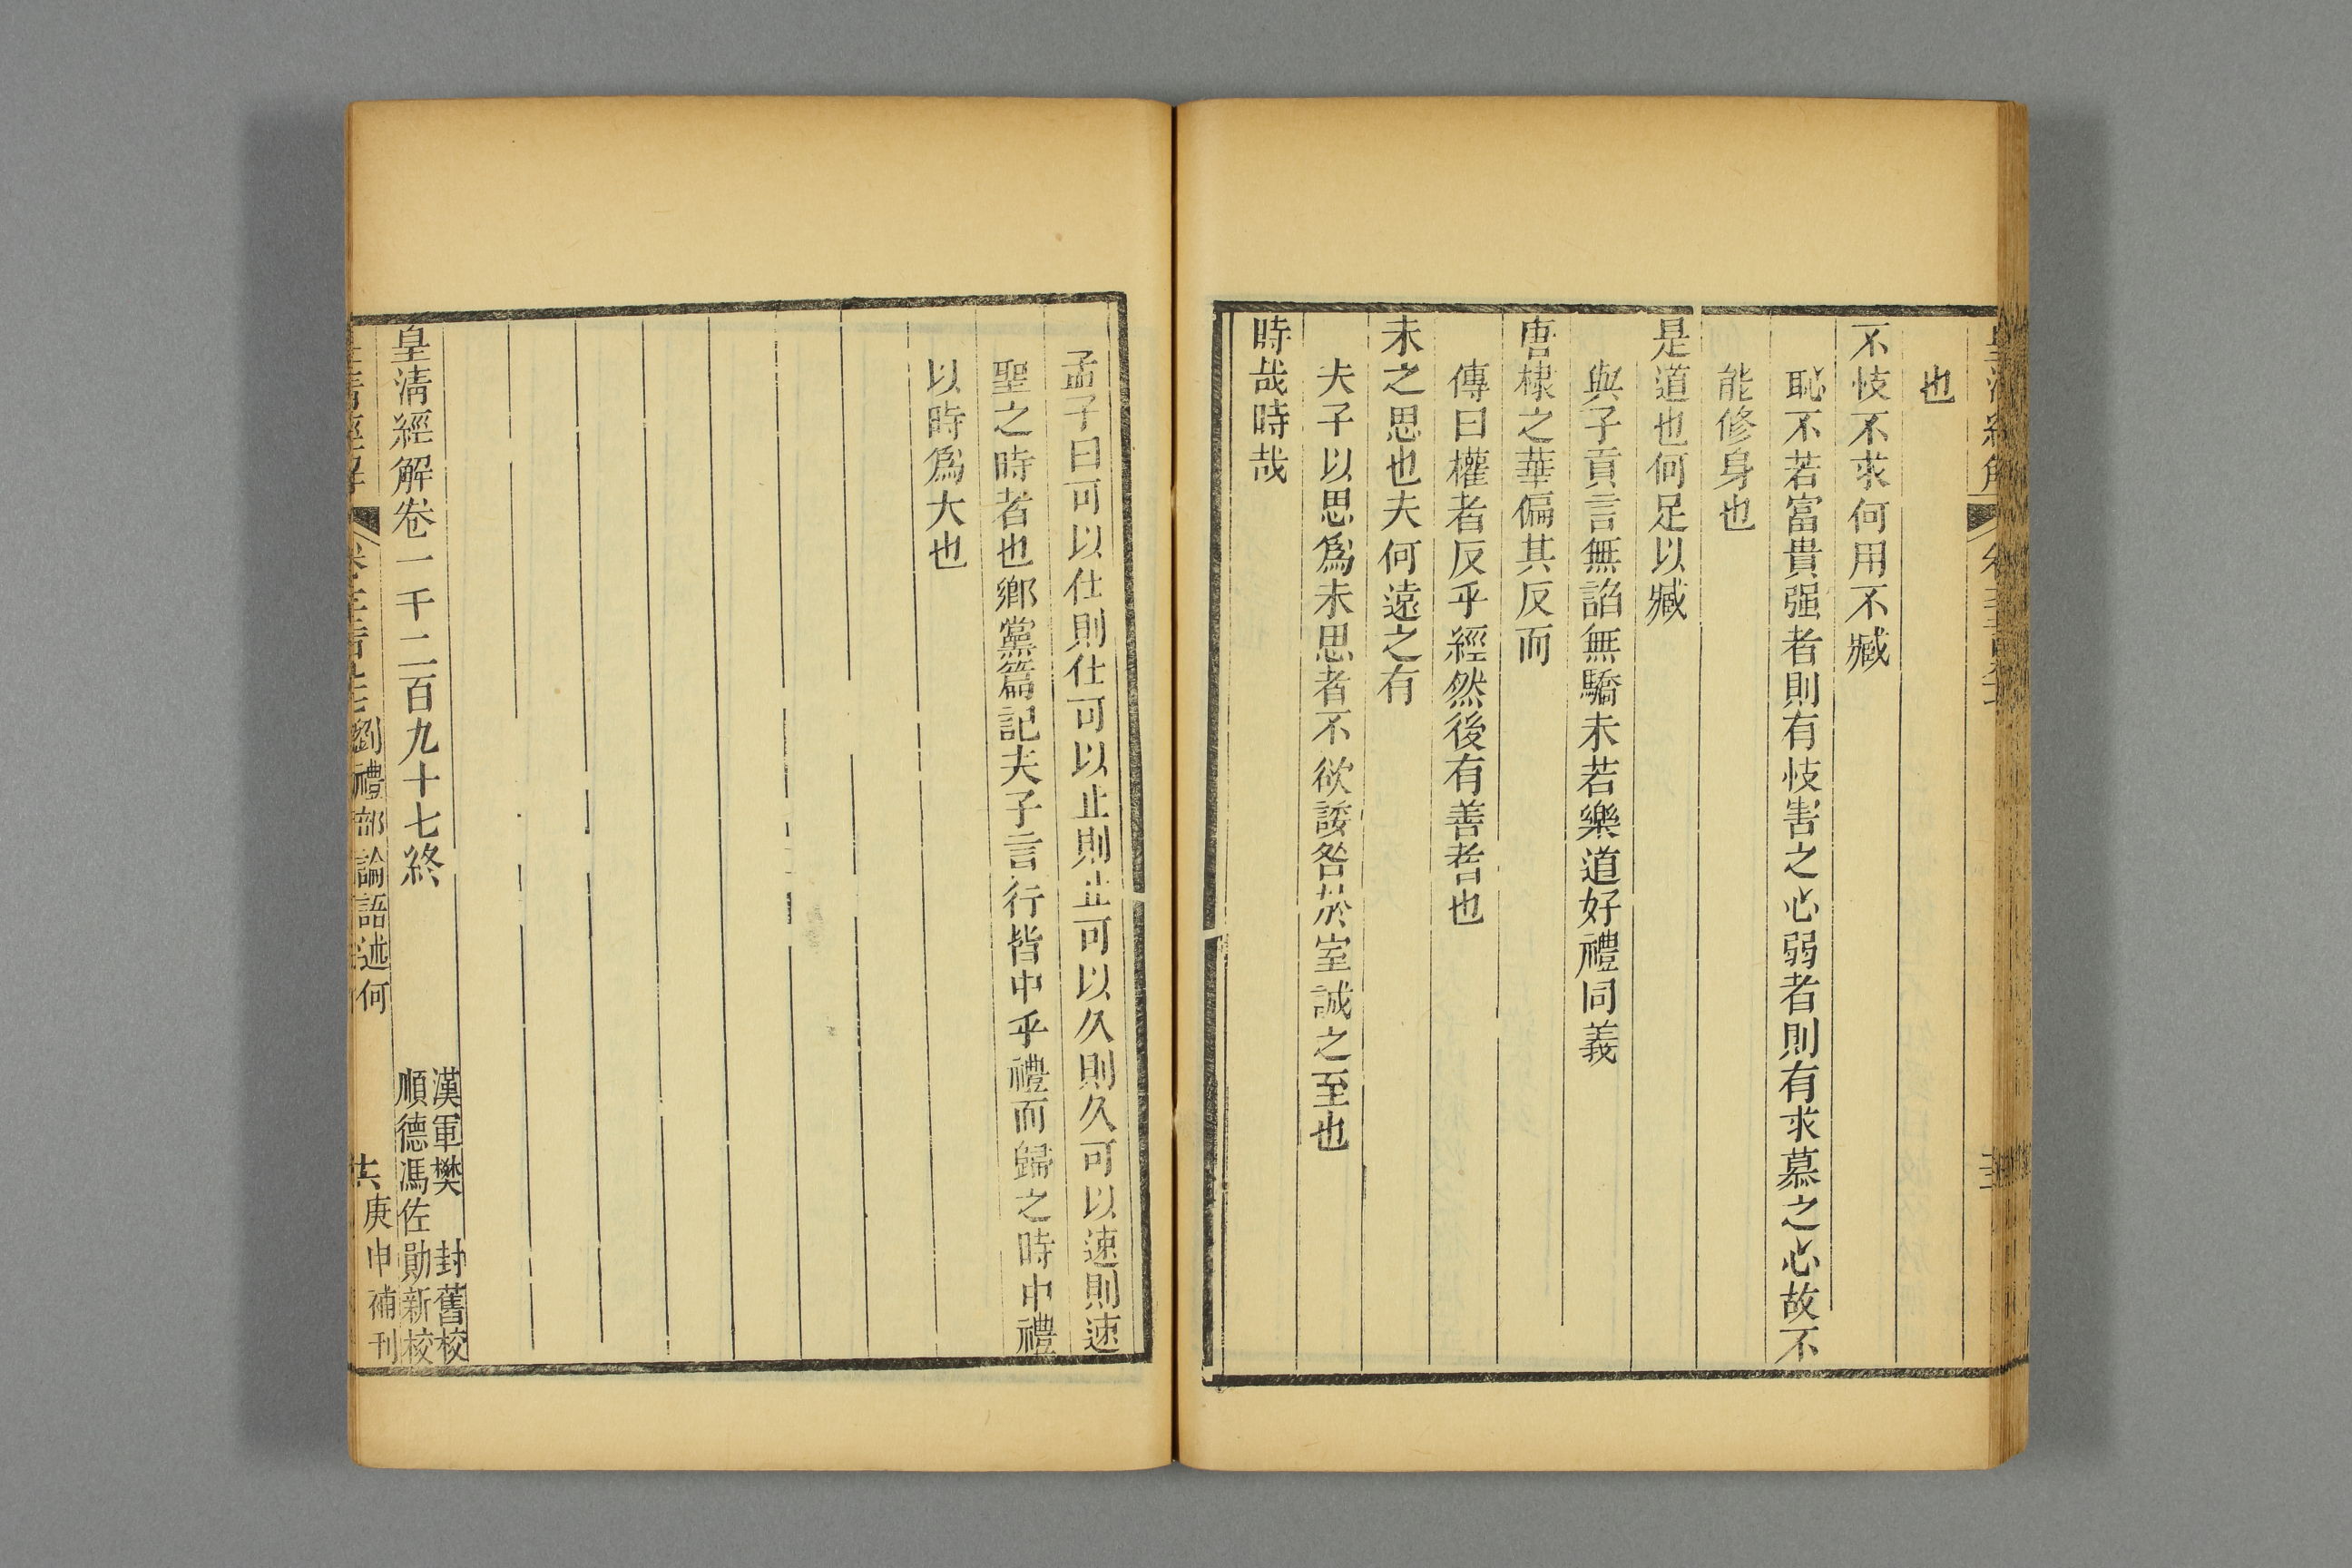 也
不忮不求何用不臧
恥不若富貴强者則有忮害之心弱者則有求慕之心故不
能修身也
是道也何足以臧
與子貢言無諂無驕未若樂道好禮同義
唐棣之華偏其反而
傳曰權者反乎經然後有善者也
未之思也夫何遠之有
夫子以思爲未思者不欲諉咎於室誠之至也
時哉時哉
孟子曰可以仕則仕可以止則止可以久則久可以速則速
聖之時者也鄉黨篇記夫子言行皆中乎禮而歸之時中禮
以時爲大也
漢軍樊封舊校
皇清經解卷一千二百九十七終
順德馮佐勛新校
皇清經解
劉禮部論語述何
庚申補刊